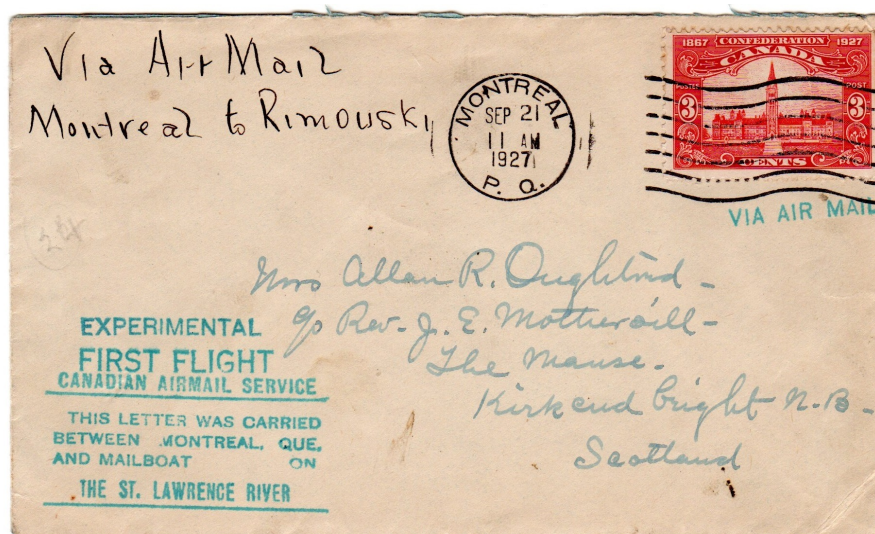 Via Air Mail
Montreal to Rimouski
MONTREAL
SEP 21
11 AM
1927
P. Q.
1867 CONFEDERATION 1927
CANADA
POSTES POST
3 3
CENTS
VIA AIR MAIL
Mrs Allan R. Oughtred -
c/o Rev. J. E. Mothersill -
The Manse -
Kirkcudbright N.B. -
Scotland
24
EXPERIMENTAL
FIRST FLIGHT
CANADIAN AIRMAIL SERVICE
THIS LETTER WAS CARRIED
BETWEEN MONTREAL, QUE,
AND MAILBOAT ON
THE ST. LAWRENCE RIVER